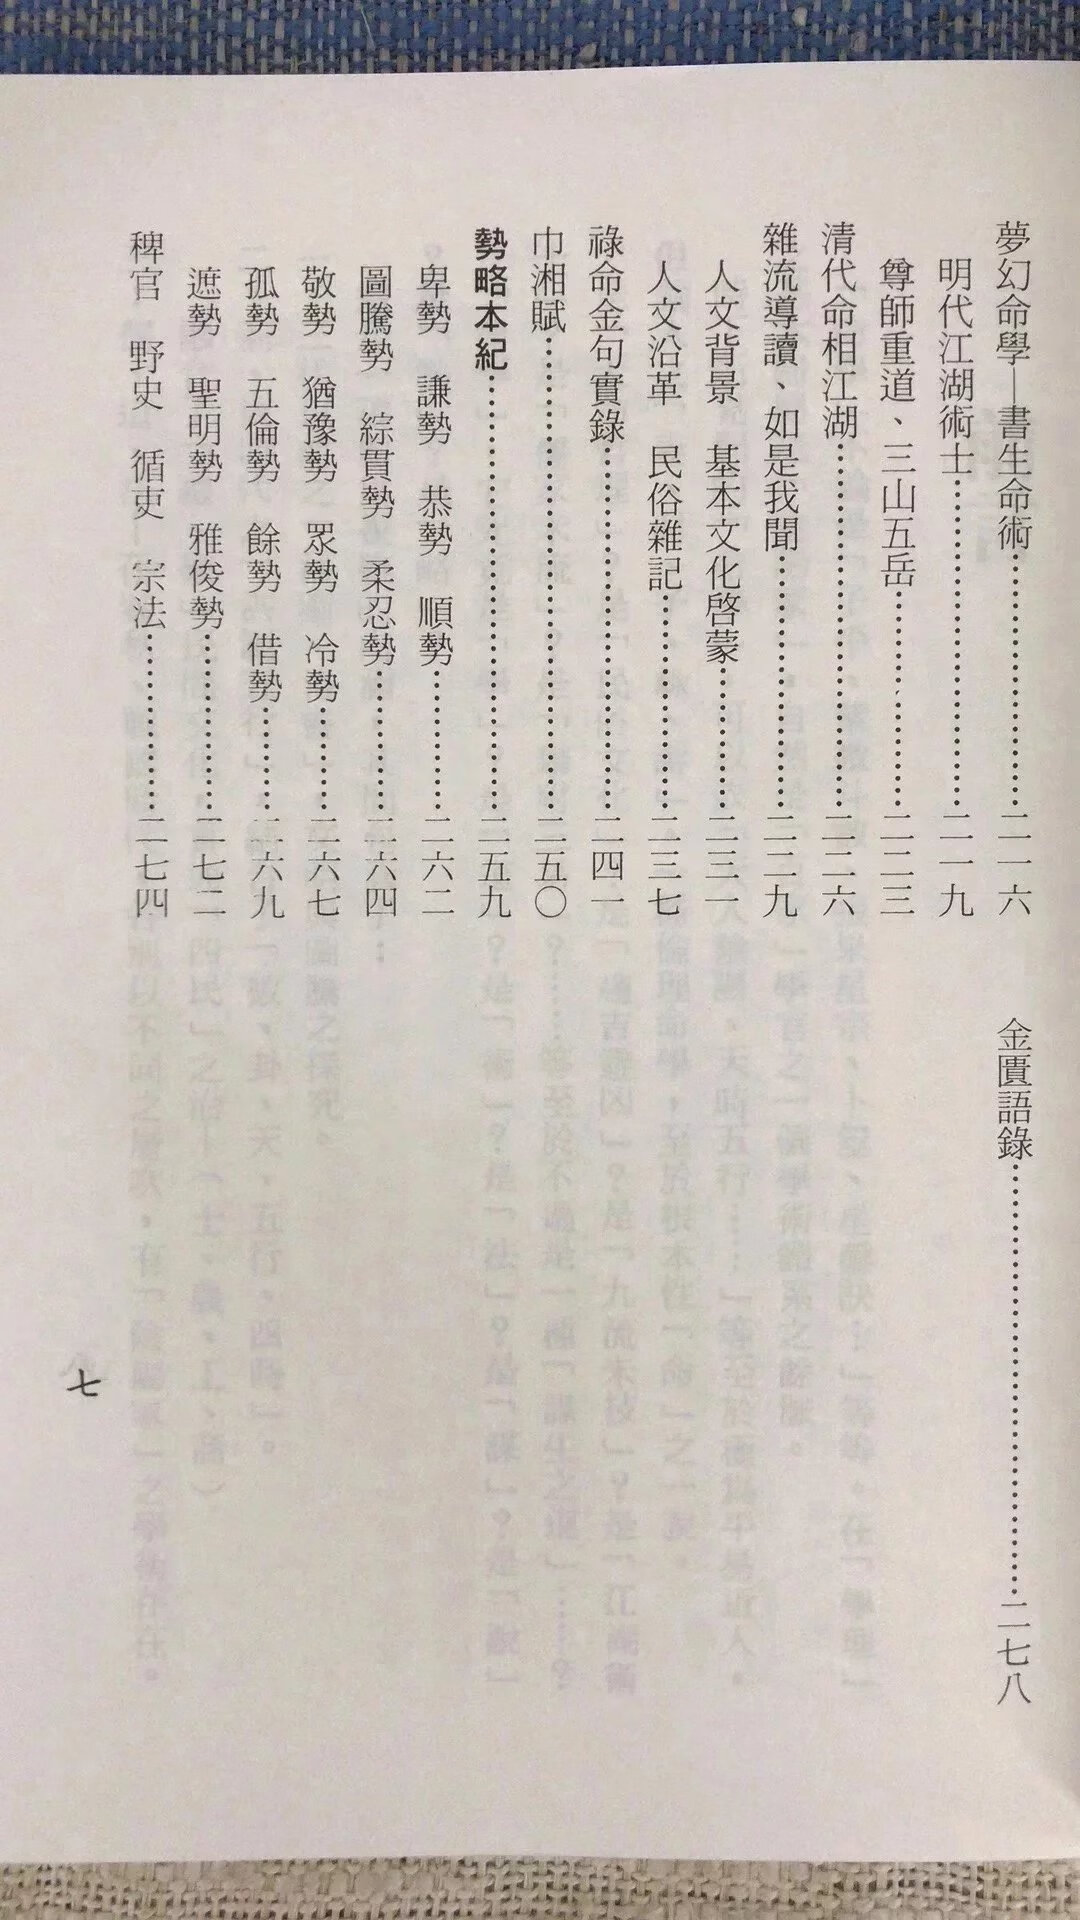 夢幻命學—書生命術……………………二一六
明代江湖術士……………………二一九
尊師重道、三山五岳……………………二二三
清代命相江湖……………………二二六
雜流導讀、如是我聞……………………二二九
人文背景　基本文化啓蒙……………………二三一
人文沿革　民俗雜記……………………二三七
祿命金句實錄……………………二四一
巾湘賦……………………二五〇
勢略本紀……………………二五九
卑勢　謙勢　恭勢　順勢……………………二六二
圖騰勢　綜貫勢　柔忍勢……………………二六四
敬勢　猶豫勢　眾勢　冷勢……………………二六七
孤勢　五倫勢　餘勢　借勢……………………二六九
遮勢　聖明勢　雅俊勢……………………二七二
稗官　野史　循吏　宗法……………………二七四
金匱語錄……………………二七八
七